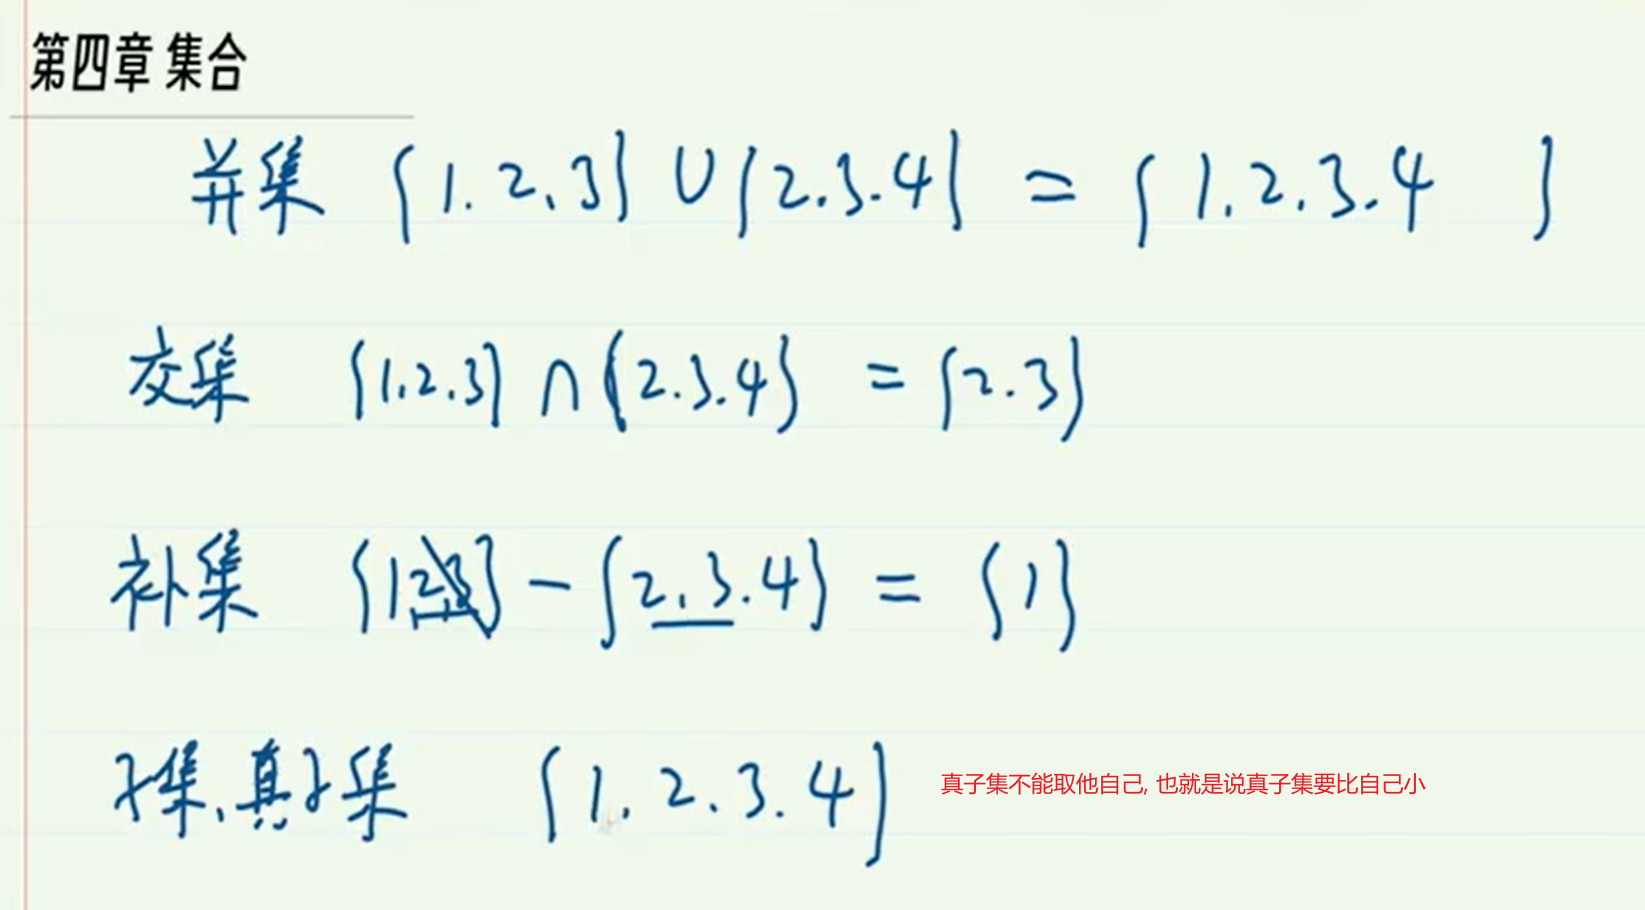 第四章 集合
并集 {1.2.3} ∪ {2.3.4} = {1.2.3.4 }
交集 {1.2.3} ∩ {2.3.4} = {2.3}
补集 {1,2,3} - {2.3.4} = {1}
子集、真子集 {1.2.3.4} 真子集不能取他自己, 也就是说真子集要比自己小